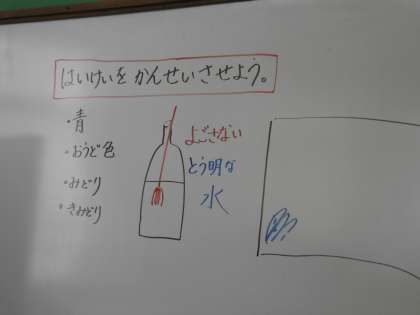 はいけいをかんせいさせよう。
・青
・おうど色
・みどり
・きみどり
よごさない
とう明な
水